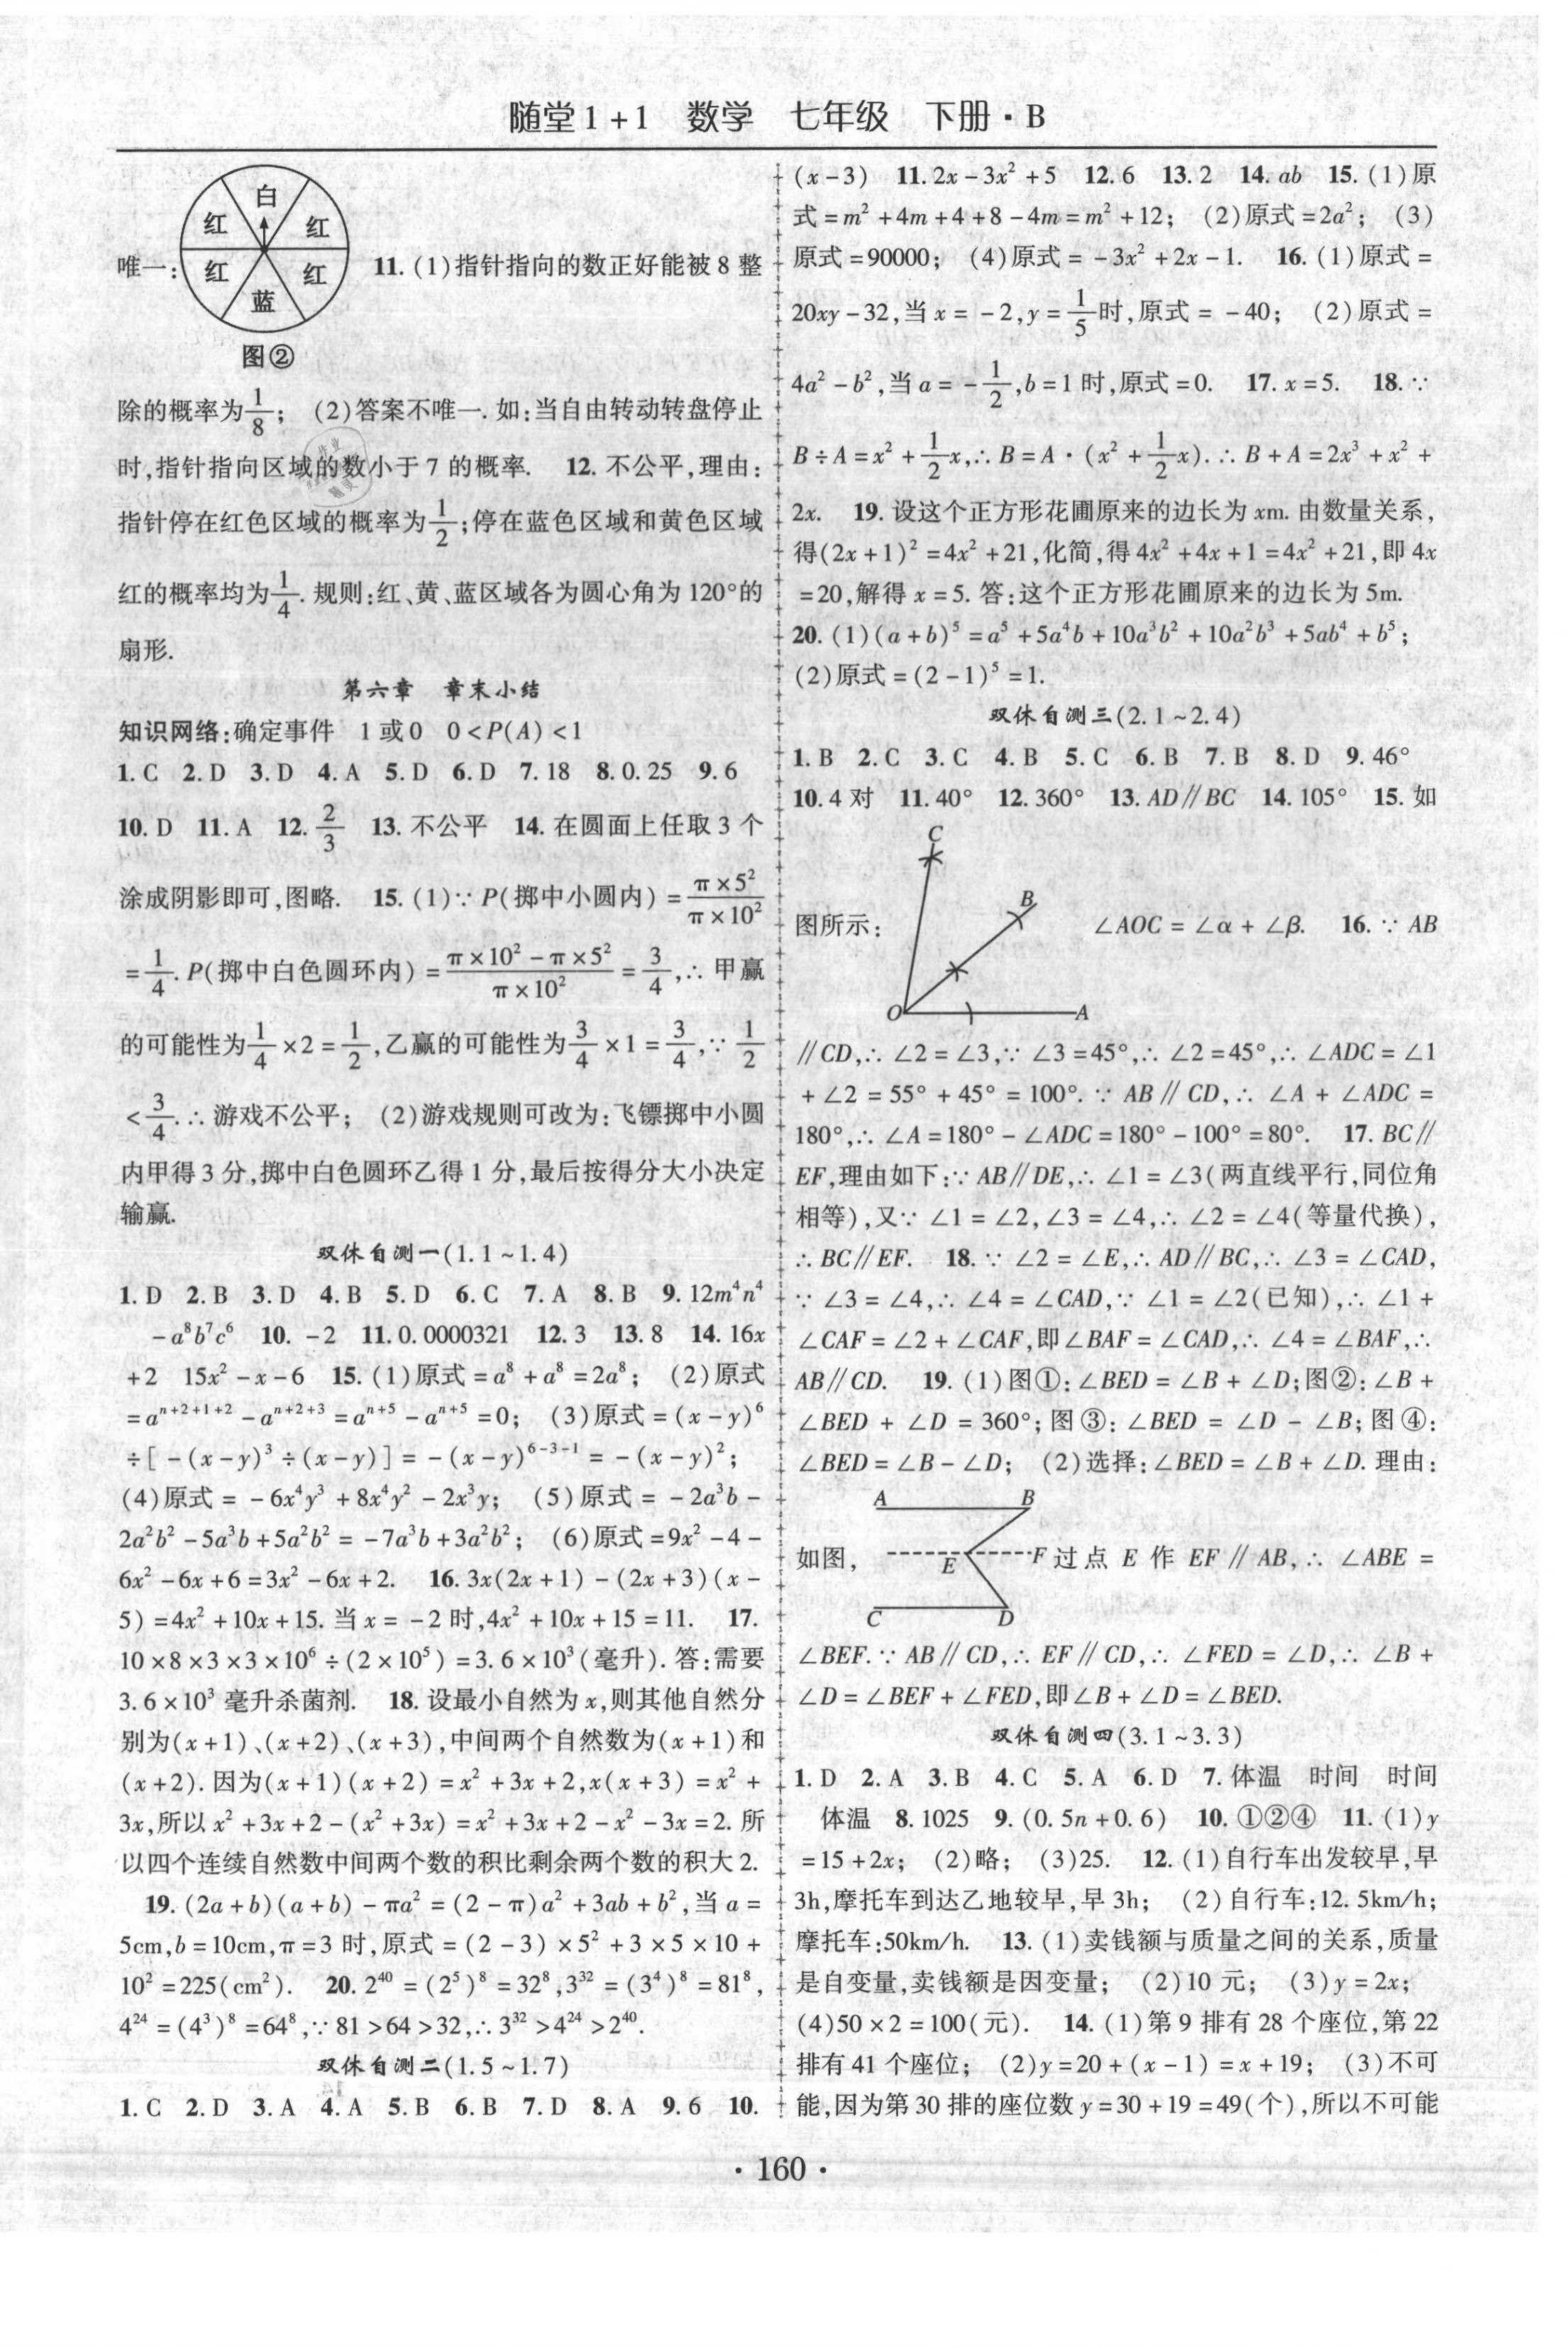 随堂1+1 数学 七年级 下册·B
白
红 红
唯一: 红 红 11. (1)指针指向的数正好能被8整
蓝
图②
除的概率为1/8; (2)答案不唯一. 如:当自由转动转盘停止
时,指针指向区域的数小于7的概率. 12. 不公平,理由:
指针停在红色区域的概率为1/2;停在蓝色区域和黄色区域
红的概率均为1/4. 规则:红、黄、蓝区域各为圆心角为120°的
扇形.
第六章 章末小结
知识网络:确定事件 1或0 0<P(A)<1
1. C 2. D 3. D 4. A 5. D 6. D 7. 18 8. 0.25 9. 6
10. D 11. A 12. 2/3 13. 不公平 14. 在圆面上任取3个
涂成阴影即可,图略. 15. (1)∵ P(掷中小圆内) = π×5²/π×10²
= 1/4. P(掷中白色圆环内) = (π×10²-π×5²)/π×10² = 3/4,∴ 甲赢
的可能性为1/4×2=1/2,乙赢的可能性为3/4×1=3/4,∵ 1/2
<3/4.∴ 游戏不公平; (2)游戏规则可改为:飞镖掷中小圆
内甲得3分,掷中白色圆环乙得1分,最后按得分大小决定
输赢.
双休自测一(1.1~1.4)
1. D 2. B 3. D 4. B 5. D 6. C 7. A 8. B 9. 12m⁴n⁴
-a⁸b⁷c⁶ 10. -2 11. 0.0000321 12. 3 13. 8 14. 16x
+2 15x²-x-6 15. (1)原式=a⁸+a⁸=2a⁸; (2)原式
=aⁿ⁺²⁺¹⁺²-aⁿ⁺²⁺³=aⁿ⁺⁵-aⁿ⁺⁵=0; (3)原式=(x-y)⁶
÷[-(x-y)³÷(x-y)]=-(x-y)⁶⁻³⁻¹=-(x-y)²;
(4)原式=-6x⁴y³+8x⁴y²-2x³y; (5)原式=-2a³b-
2a²b²-5a³b+5a²b²=-7a³b+3a²b²; (6)原式=9x²-4-
6x²-6x+6=3x²-6x+2. 16. 3x(2x+1)-(2x+3)(x-
5)=4x²+10x+15. 当x=-2时,4x²+10x+15=11. 17.
10×8×3×3×10⁶÷(2×10⁵)=3.6×10³(毫升). 答:需要
3.6×10³毫升杀菌剂. 18. 设最小自然为x,则其他自然分
别为(x+1)、(x+2)、(x+3),中间两个自然数为(x+1)和
(x+2). 因为(x+1)(x+2)=x²+3x+2,x(x+3)=x²+
3x,所以x²+3x+2-(x²+3x)=x²+3x+2-x²-3x=2. 所
以四个连续自然数中间两个数的积比剩余两个数的积大2.
19. (2a+b)(a+b)-πa²=(2-π)a²+3ab+b²,当a=
5cm,b=10cm,π=3时,原式=(2-3)×5²+3×5×10+
10²=225(cm²). 20. 2⁴⁰=(2⁵)⁸=32⁸,3³²=(3⁴)⁸=81⁸,
4²⁴=(4³)⁸=64⁸,∵81>64>32,∴3³²>4²⁴>2⁴⁰.
双休自测二(1.5~1.7)
1. C 2. D 3. A 4. A 5. B 6. B 7. D 8. A 9. 6 10.
(x-3) 11. 2x-3x²+5 12. 6 13. 2 14. ab 15. (1)原
式=m²+4m+4+8-4m=m²+12; (2)原式=2a²; (3)
原式=90000; (4)原式=-3x²+2x-1. 16. (1)原式=
20xy-32,当x=-2,y=1/5时,原式=-40; (2)原式=
4a²-b²,当a=-1/2,b=1时,原式=0. 17. x=5. 18. ∵
B÷A=x²+1/2x,∴B=A·(x²+1/2x).∴B+A=2x³+x²+
2x. 19. 设这个正方形花圃原来的边长为xm. 由数量关系,
得(2x+1)²=4x²+21,化简,得4x²+4x+1=4x²+21,即4x
=20,解得x=5. 答:这个正方形花圃原来的边长为5m.
20. (1)(a+b)⁵=a⁵+5a⁴b+10a³b²+10a²b³+5ab⁴+b⁵;
(2)原式=(2-1)⁵=1.
双休自测三(2.1~2.4)
1. B 2. C 3. C 4. B 5. C 6. B 7. B 8. D 9. 46°
10. 4对 11. 40° 12. 360° 13. AD∥BC 14. 105° 15. 如
C
B
图所示: ∠AOC=∠α+∠β. 16. ∵ AB
O A
∥CD,∴∠2=∠3,∵∠3=45°,∴∠2=45°,∴∠ADC=∠1
+∠2=55°+45°=100°. ∵ AB∥CD,∴∠A+∠ADC=
180°,∴∠A=180°-∠ADC=180°-100°=80°. 17. BC∥
EF,理由如下:∵AB∥DE,∴∠1=∠3(两直线平行,同位角
相等),又∵∠1=∠2,∠3=∠4,∴∠2=∠4(等量代换),
∴BC∥EF. 18. ∵∠2=∠E,∴AD∥BC,∴∠3=∠CAD,
∵∠3=∠4,∴∠4=∠CAD,∵∠1=∠2(已知),∴∠1+
∠CAF=∠2+∠CAF,即∠BAF=∠CAD,∴∠4=∠BAF,∴
AB∥CD. 19. (1)图①:∠BED=∠B+∠D;图②:∠B+
∠BED+∠D=360°;图③:∠BED=∠D-∠B;图④:
∠BED=∠B-∠D; (2)选择:∠BED=∠B+∠D. 理由:
A B
如图, E F 过点E作EF∥AB,∴∠ABE=
C D
∠BEF.∵AB∥CD,∴EF∥CD,∴∠FED=∠D,∴∠B+
∠D=∠BEF+∠FED,即∠B+∠D=∠BED.
双休自测四(3.1~3.3)
1. D 2. A 3. B 4. C 5. A 6. D 7. 体温 时间 时间
体温 8. 1025 9. (0.5n+0.6) 10. ①②④ 11. (1)y
=15+2x; (2)略; (3)25. 12. (1)自行车出发较早,早
3h,摩托车到达乙地较早,早3h; (2)自行车:12.5km/h;
摩托车:50km/h. 13. (1)卖钱额与质量之间的关系,质量
是自变量,卖钱额是因变量; (2)10元; (3)y=2x;
(4)50×2=100(元). 14. (1)第9排有28个座位,第22
排有41个座位; (2)y=20+(x-1)=x+19; (3)不可
能,因为第30排的座位数y=30+19=49(个),所以不可能
·160·